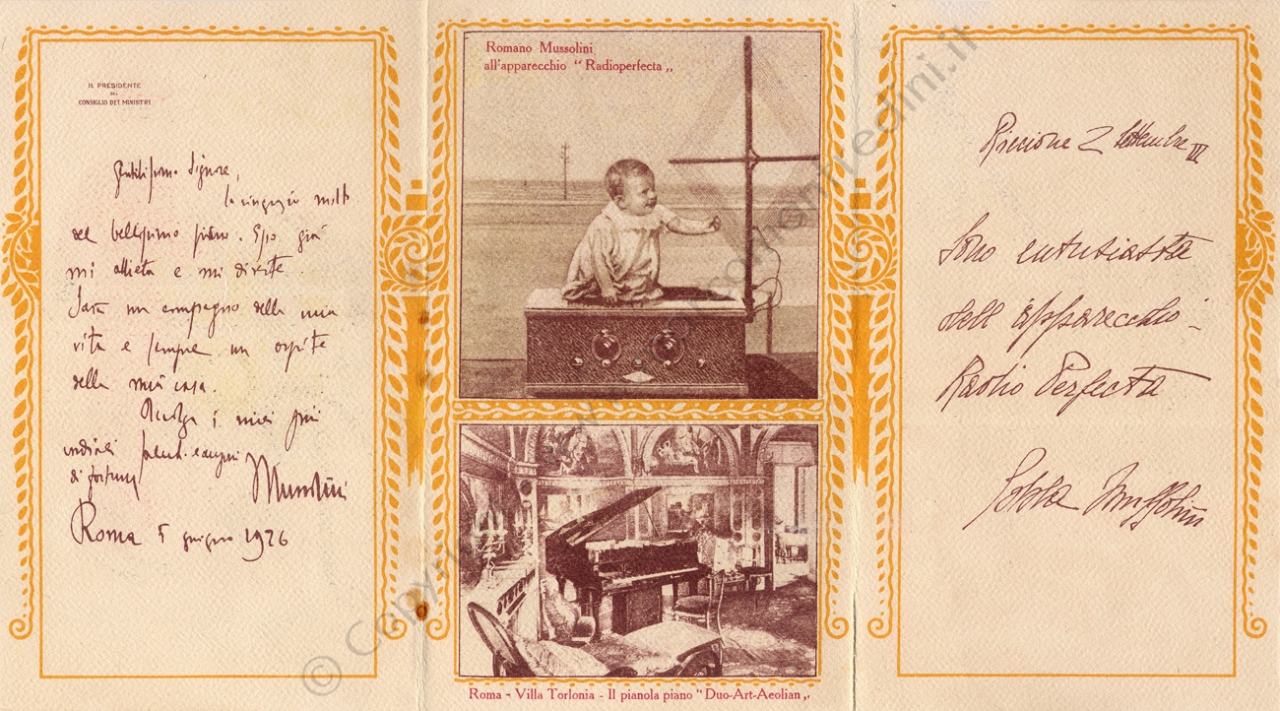 IL PRESIDENTE
DEL
CONSIGLIO DEI MINISTRI
Gentilissimo Signore,
la ringrazio molto
del bellissimo piano. Esso già
mi allieta e mi diverte.
Sarà un compagno della mia
vita e sempre un ospite
della mia casa.
Accolga i miei più
cordiali saluti e auguri
di fortuna
Mussolini
Roma 5 giugno 1926
Romano Mussolini
all'apparecchio “ Radioperfecta „
Roma - Villa Torlonia - Il pianola piano “ Duo-Art-Aeolian „
Riccione 2 settembre
Sono entusiasta
dell'apparecchio -
Radio Perfecta
Mussolini
© Copyright